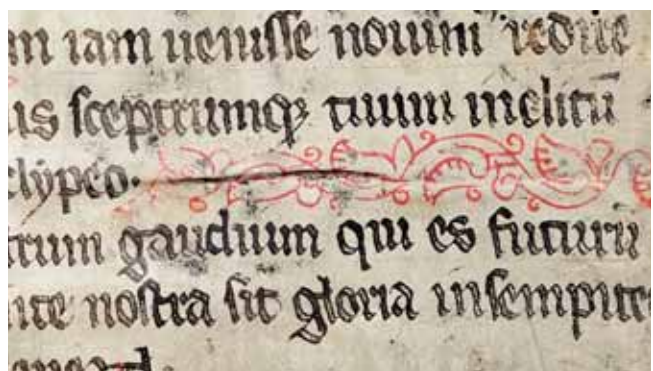 m iam uenisse nouimꝰ redire
us sceptrumqꝫ tuum inclitū
clypeo.
trum gaudium qui es futurū
nte nostra sit gloria insempite